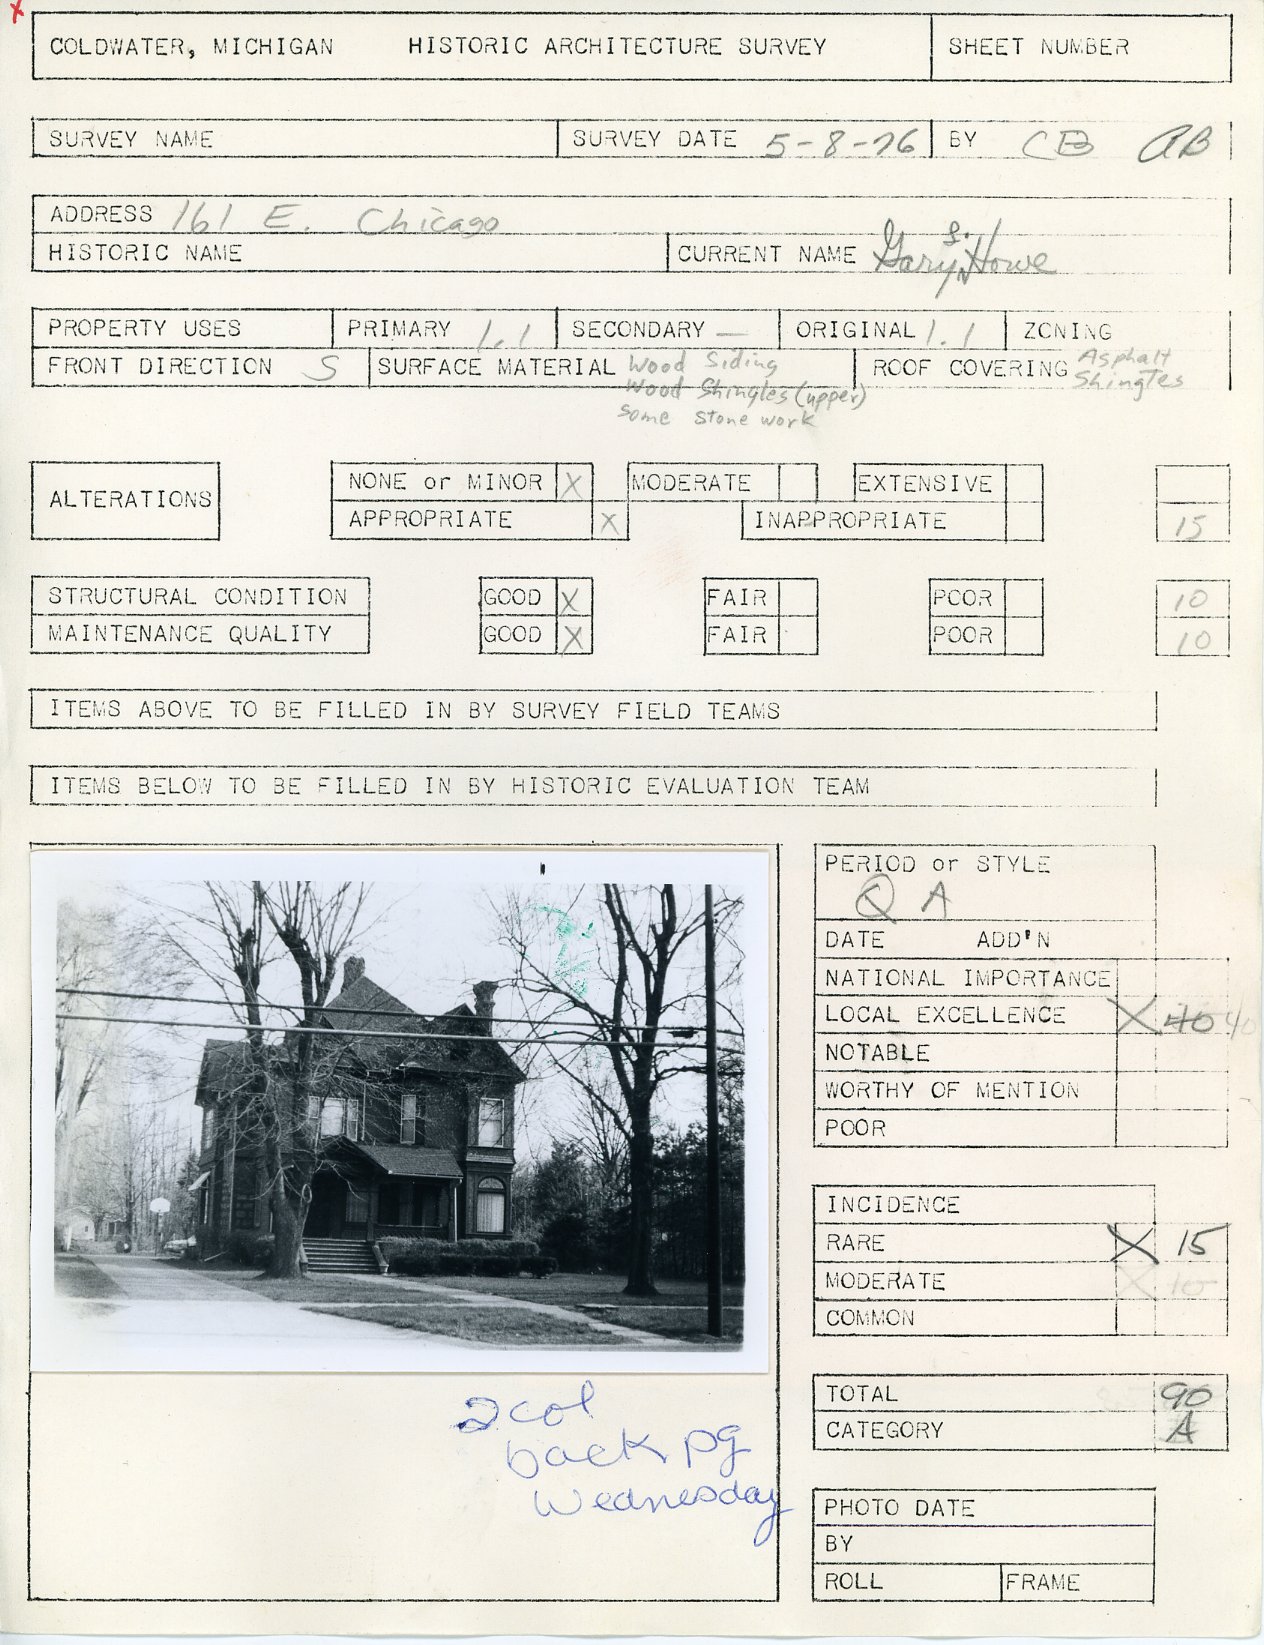 COLDWATER, MICHIGAN HISTORIC ARCHITECTURE SURVEY SHEET NUMBER
SURVEY NAME SURVEY DATE 5-8-76 BY CB AB
ADDRESS 161 E. Chicago
HISTORIC NAME CURRENT NAME Gary S. Howe
PROPERTY USES PRIMARY 1.1 SECONDARY — ORIGINAL 1.1 ZONING
FRONT DIRECTION S SURFACE MATERIAL Wood Siding ROOF COVERING Asphalt Shingles
Wood Shingles (upper)
some stone work
ALTERATIONS NONE or MINOR X MODERATE EXTENSIVE
APPROPRIATE X INAPPROPRIATE 15
STRUCTURAL CONDITION GOOD X FAIR POOR 10
MAINTENANCE QUALITY GOOD X FAIR POOR 10
ITEMS ABOVE TO BE FILLED IN BY SURVEY FIELD TEAMS
ITEMS BELOW TO BE FILLED IN BY HISTORIC EVALUATION TEAM
PERIOD or STYLE
Q A
DATE ADD'N
NATIONAL IMPORTANCE
LOCAL EXCELLENCE X 40 40
NOTABLE
WORTHY OF MENTION
POOR
INCIDENCE
RARE X 15
MODERATE X 10
COMMON
TOTAL 90
CATEGORY A
2 col
back pg
Wednesday
PHOTO DATE
BY
ROLL FRAME